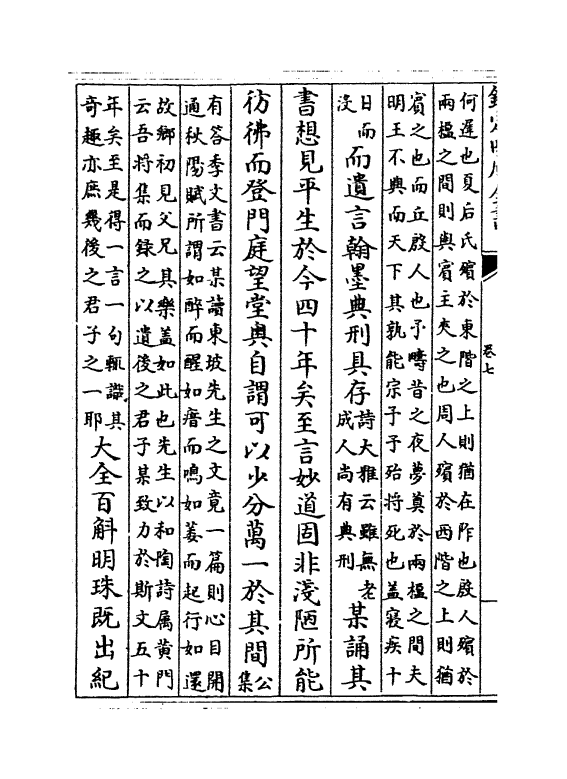 何遲也夏后氏殯於東階之上則猶在阼也殷人殯於
兩楹之間則與賓主夾之也周人殯於西階之上則猶
賓之也而丘殷人也予疇昔之夜夢奠於兩楹之間夫
明王不興而天下其孰能宗予予殆將死也蓋寢疾十
日而
沒
而遺言翰墨典刑具存
詩大雅云雖無老
成人尚有典刑
某誦其
書想見平生於今四十年矣至言妙道固非淺陋所能
彷彿而登門庭望堂奥自謂可以少分萬一於其間
公
集
有答李文書云某讀東坡先生之文竟一篇則心目開
通秋陽賦所謂如醉而醒如瘖而鳴如萎而起行如還
故鄉初見父兄其樂蓋如此也先生以和陶詩属黄門
云吾將集而録之以遺後之君子某致力於斯文五十
年矣至是得一言一句輒識其
奇趣亦庶幾後之君子之一耶
大全百斛明珠既出紀
卷七